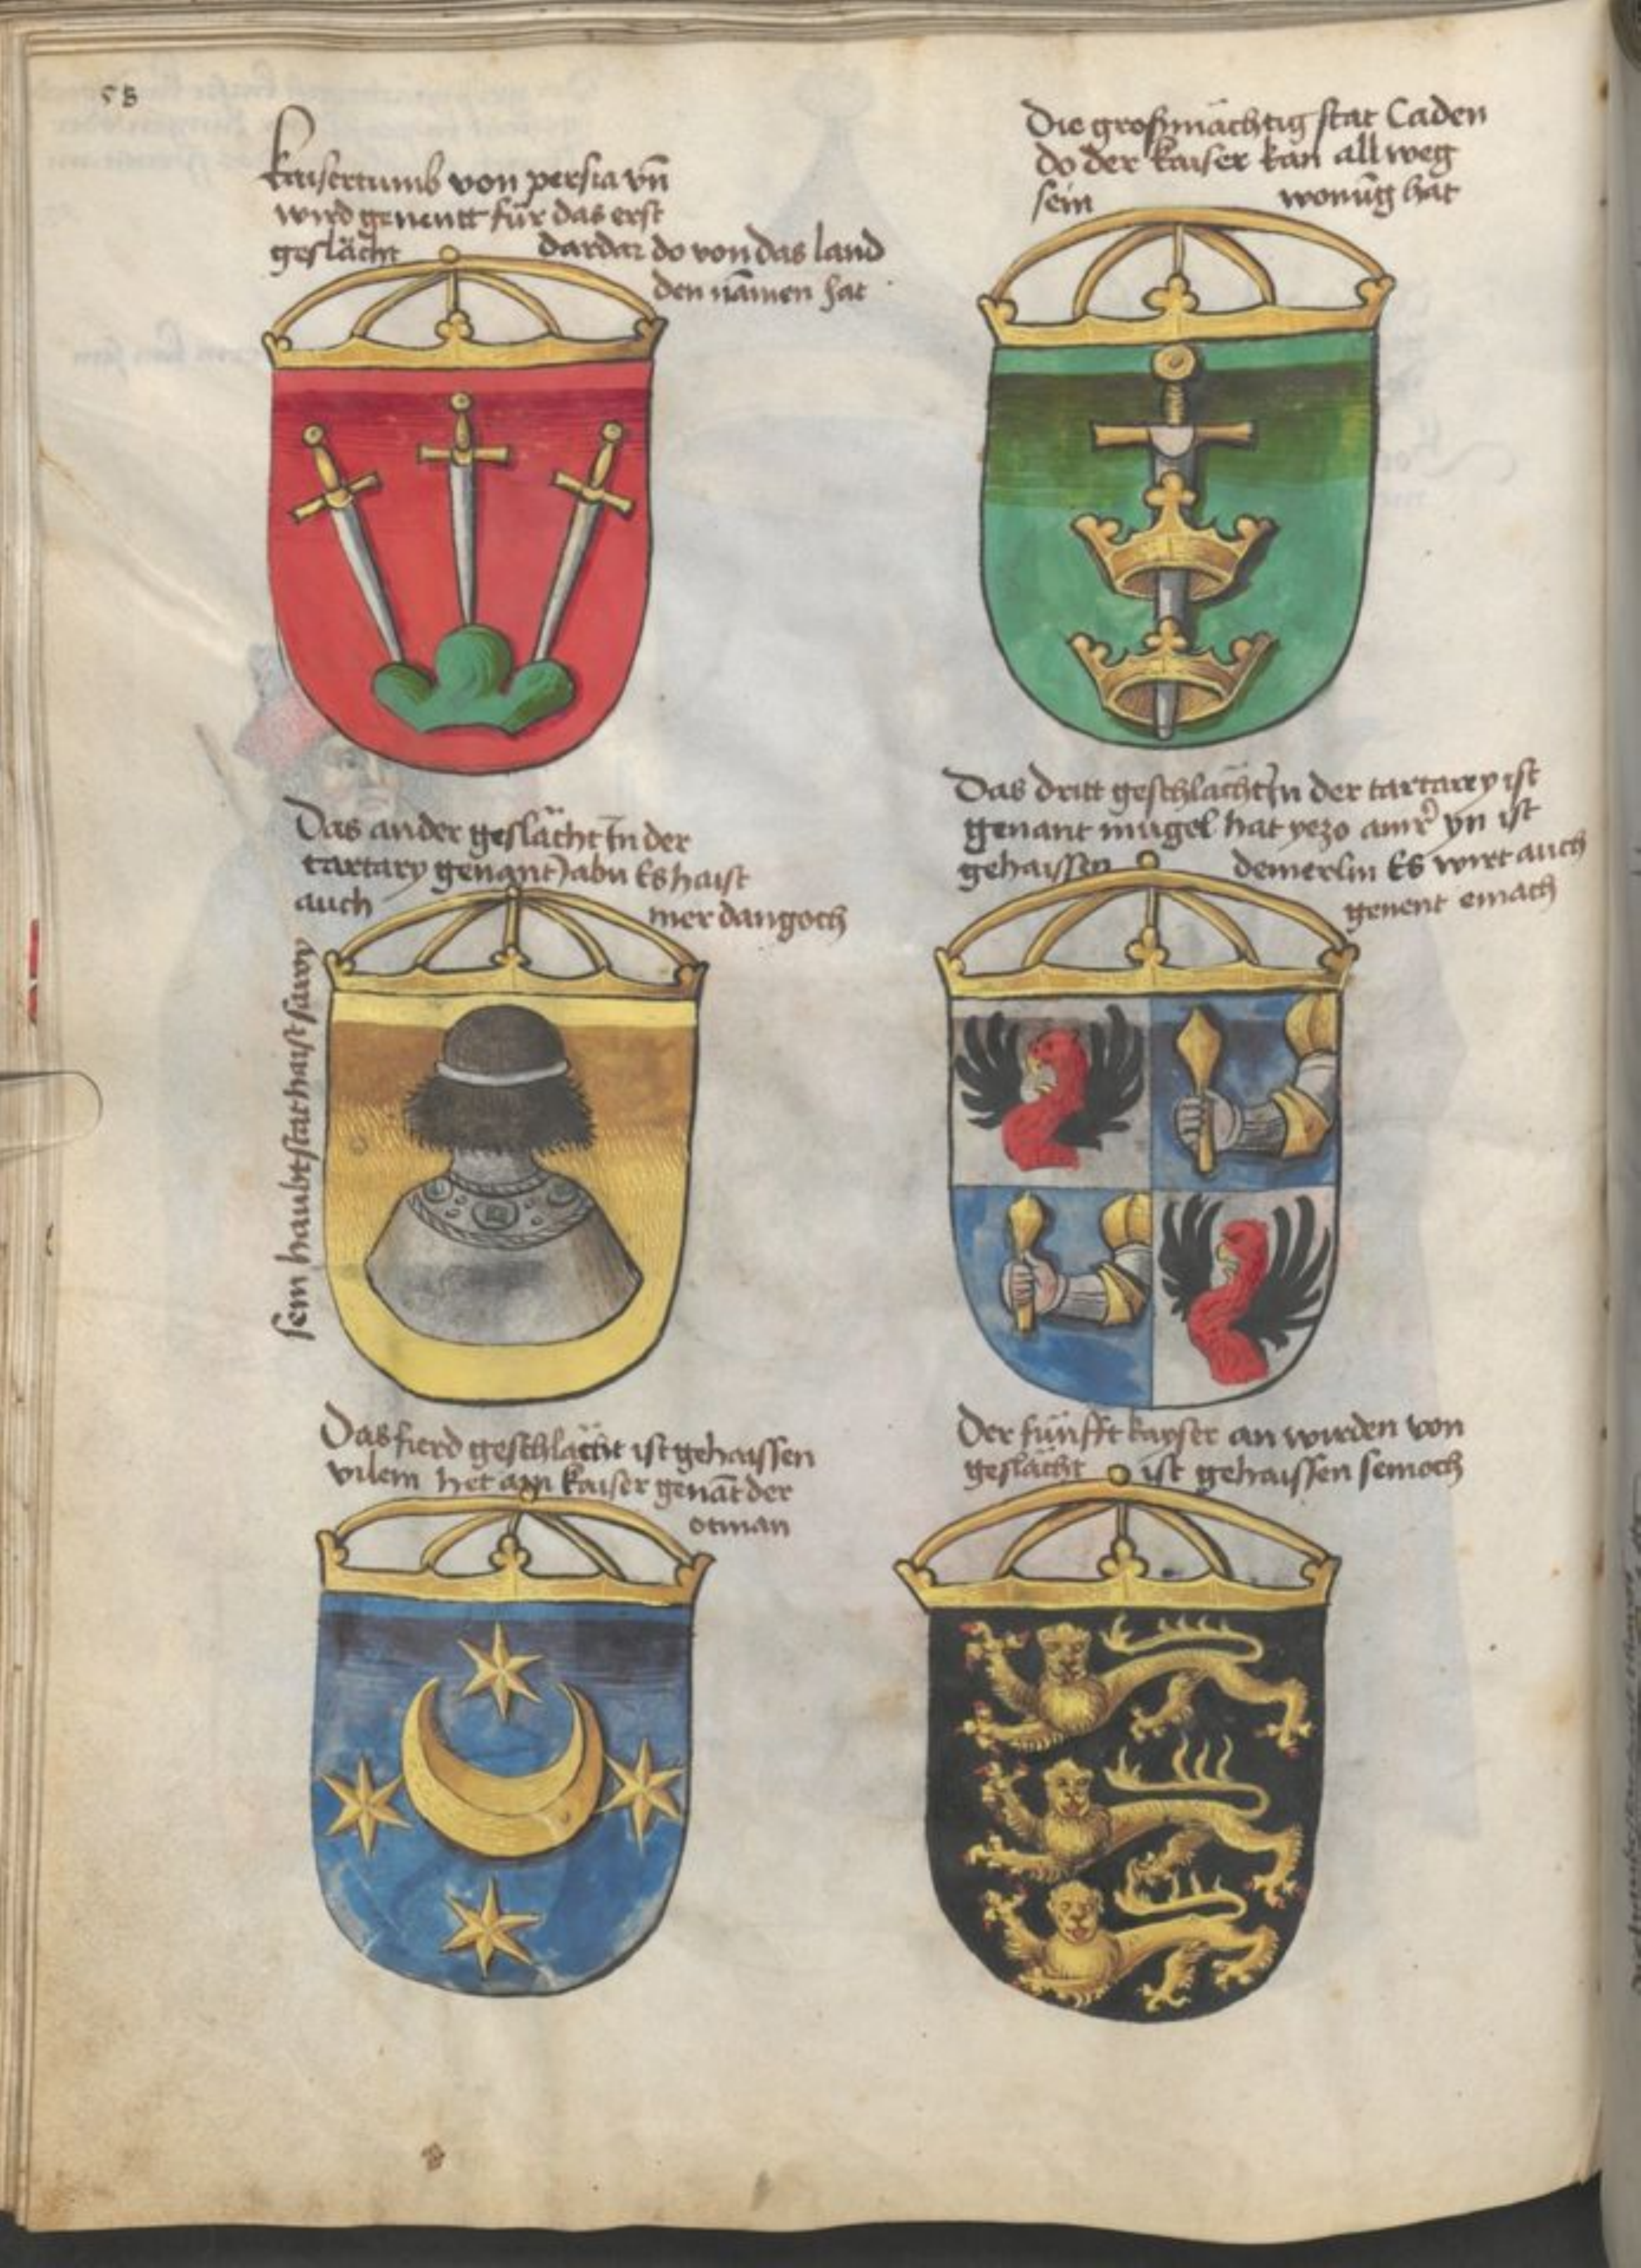 58
kaisertumb von persia vn̄
wird genentt für das erst
geslächt dardar do von das land
den nāmen hat
Die großmächtig stat Caden
do der kaiser kan all weg
sein wonūg hat
Das ander geslächt In der
tartary genant Jabu Es haist
auch mer dangoch
sein haubtstat haist sawy
Das dritt geschlächt In der tartarey ist
genant mugel hat yezo yn ist
gehaissen demerlin Es wirt auch
genent emach
Das fierd geschlächt ist gehaissen
vilem het ayn kaiser genāt der
otman
Der fünfft kayser an wirden von
geslächt ist gehaissen semoch